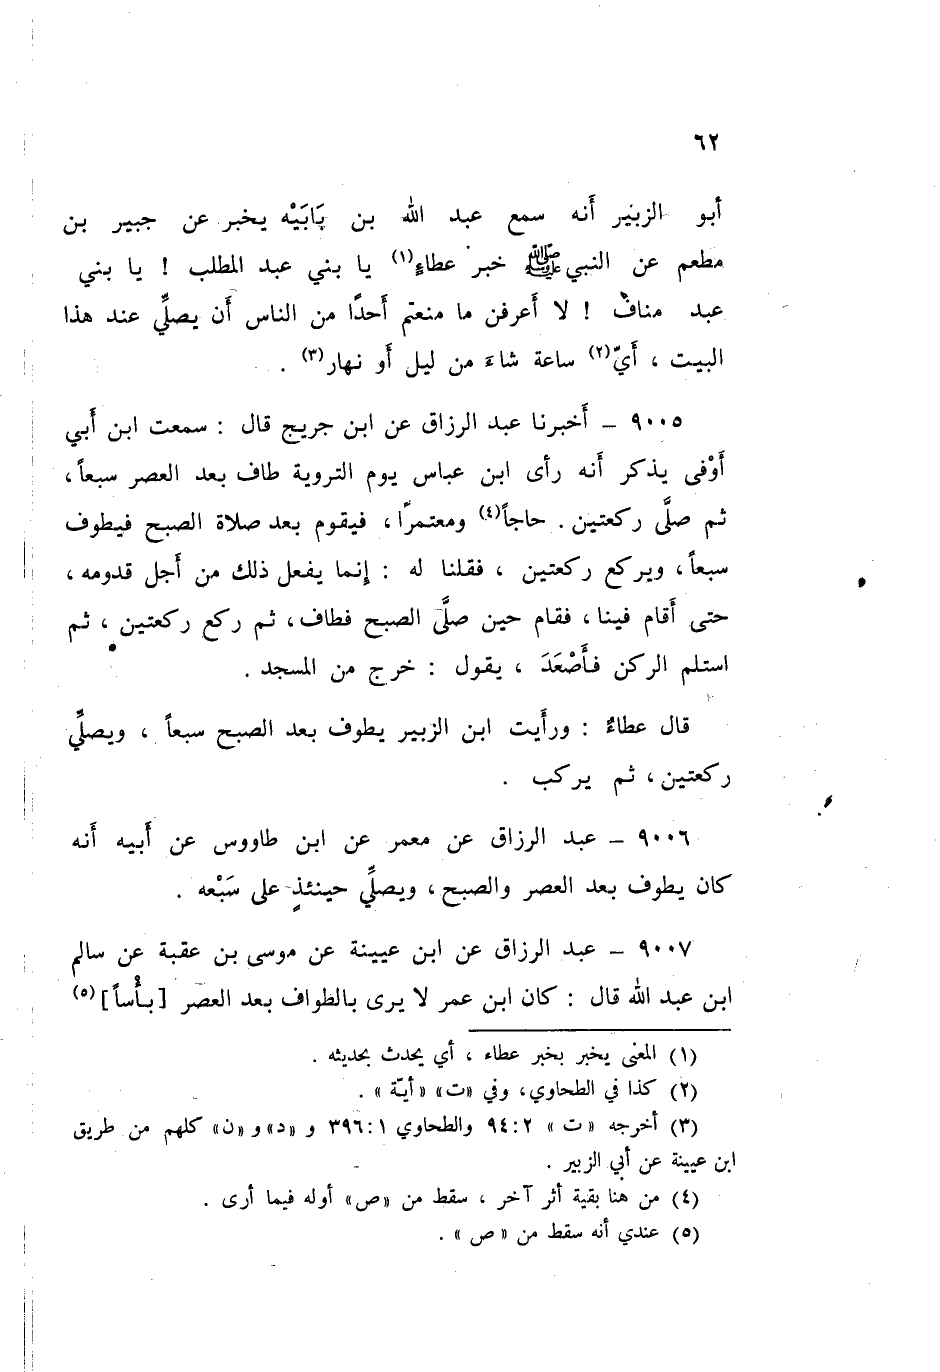 ٦٢
أبو الزبير أنه سمع عبد الله بن بَابَيْه يخبر عن جبير بن
مطعم عن النبي ﷺ خبر عطاءٍ(١) يا بني عبد المطلب ! يا بني
عبد مناف ! لا أَعرفن ما منعتم أَحدًا من الناس أَن يصلِّي عند هذا
البيت ، أَيّ(٢) ساعة شاءَ من ليل أَو نهار(٣) .
٩٠٠٥ – أَخبرنا عبد الرزاق عن ابن جريج قال : سمعت ابن أَبي
أَوْفى يذكر أَنه رأى ابن عباس يوم التروية طاف بعد العصر سبعاً ،
ثم صلَّى ركعتين . حاجاً(٤) ومعتمرًا ، فيقوم بعد صلاة الصبح فيطوف
سبعاً ، ويركع ركعتين ، فقلنا له : إنما يفعل ذلك من أَجل قدومه ،
حتى أَقام فينا ، فقام حين صلَّى الصبح فطاف ، ثم ركع ركعتين ، ثم
استلم الركن فأَصْعَدَ ، يقول : خرج من المسجد .
قال عطاءٌ : ورأَيت ابن الزبير يطوف بعد الصبح سبعاً ، ويصلِّي
ركعتين ، ثم يركب .
٩٠٠٦ – عبد الرزاق عن معمر عن ابن طاووس عن أَبيه أَنه
كان يطوف بعد العصر والصبح ، ويصلِّي حينئذٍ على سَبْعه .
٩٠٠٧ – عبد الرزاق عن ابن عيينة عن موسى بن عقبة عن سالم
ابن عبد الله قال : كان ابن عمر لا يرى بالطواف بعد العصر [بأْساً](٥)
(١) المعنى يخبر بخبر عطاء ، أي يحدث بحديثه .
(٢) كذا في الطحاوي ، وفي «ت» «أيّة» .
(٣) أخرجه «ت» ٢ : ٩٤ والطحاوي ١ : ٣٩٦ و «د» و «ن» كلهم من طريق
ابن عيينة عن أبي الزبير .
(٤) من هنا بقية أثر آخر ، سقط من «ص» أوله فيما أرى .
(٥) عندي أنه سقط من «ص» .